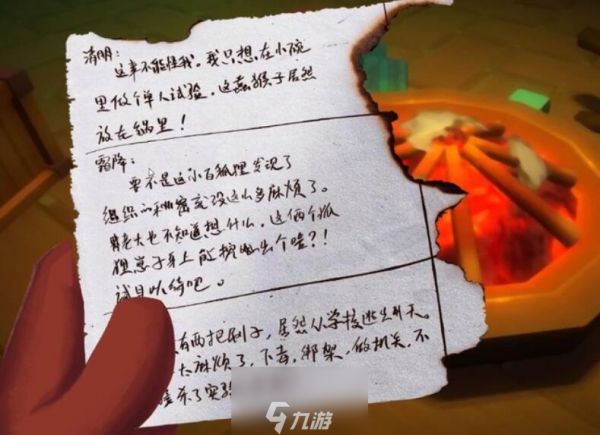 清明：
这事不能怪我。我只想在小碗
里做个单人试验，这蠢猴子居然
放在锅里！
霜降：
要不是这小白狐狸发现了
组织的秘密哪没这么多麻烦了。
老大也不知道想什么，这俩个狐
狸崽子身上能挖出个啥？！
拭目以待吧。
有两把刷子，居然从学校逃出升天。
太麻烦了，下毒，绑架，做机关，不
杀了实
九游